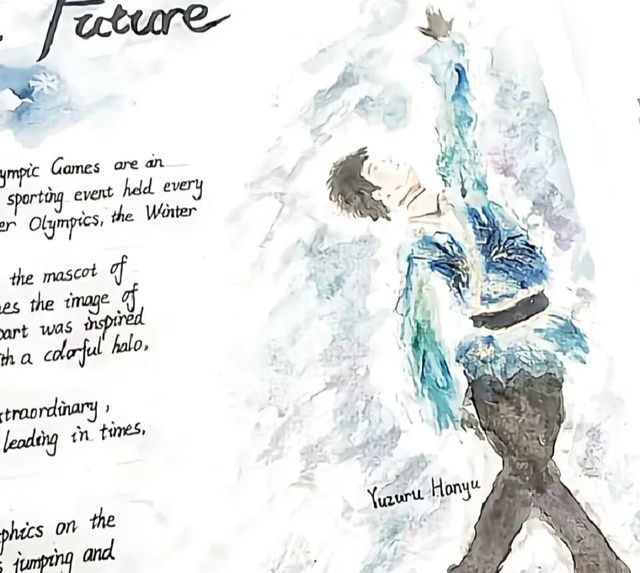 Future
ympic Games are an
sporting event held every
er Olympics, the Winter
the mascot of
es the image of
part was inspired
th a colorful halo,
straordinary,
leading in times,
phics on the
s jumping and
Yuzuru Hanyu